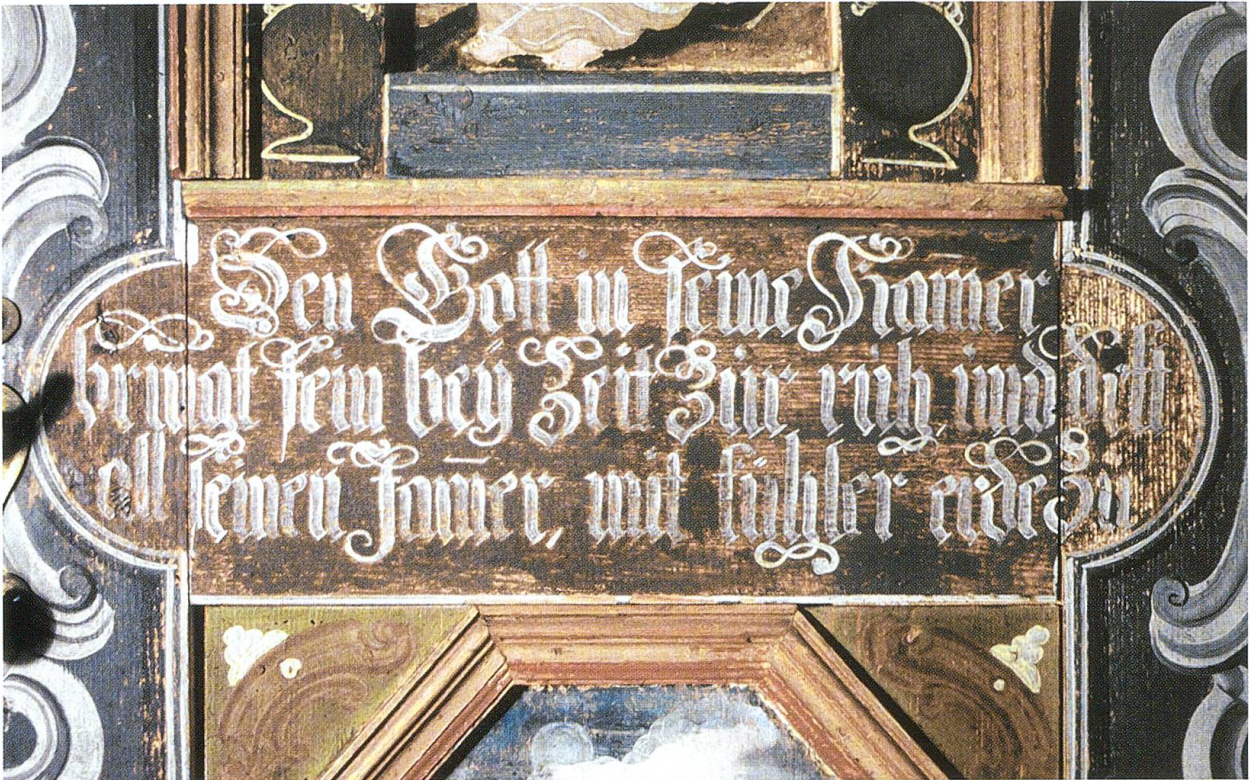 Den Gott in seine Kamer
bringt fein beÿ Zeit Zur ruh, und dist
all seinen Jam̄er, mit kühler erde Zu